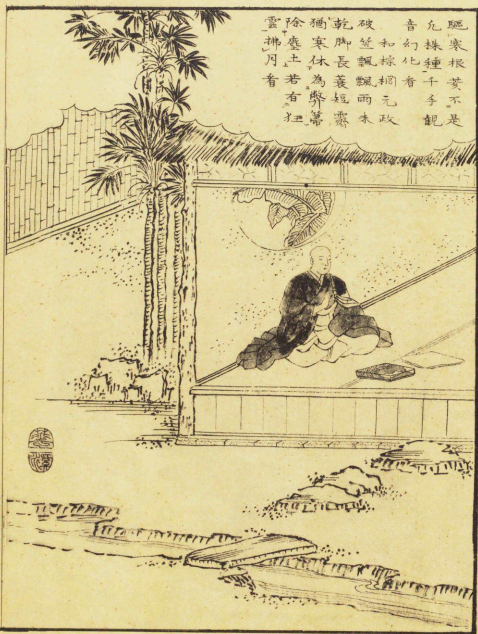 寒根茇不是
凡株種千手観
音幻化看
和棕櫚 元政
破笠飄飄雨未
乾脚長蓑短露
猶寒休為弊箒
除塵土若有狂
雲拂月看